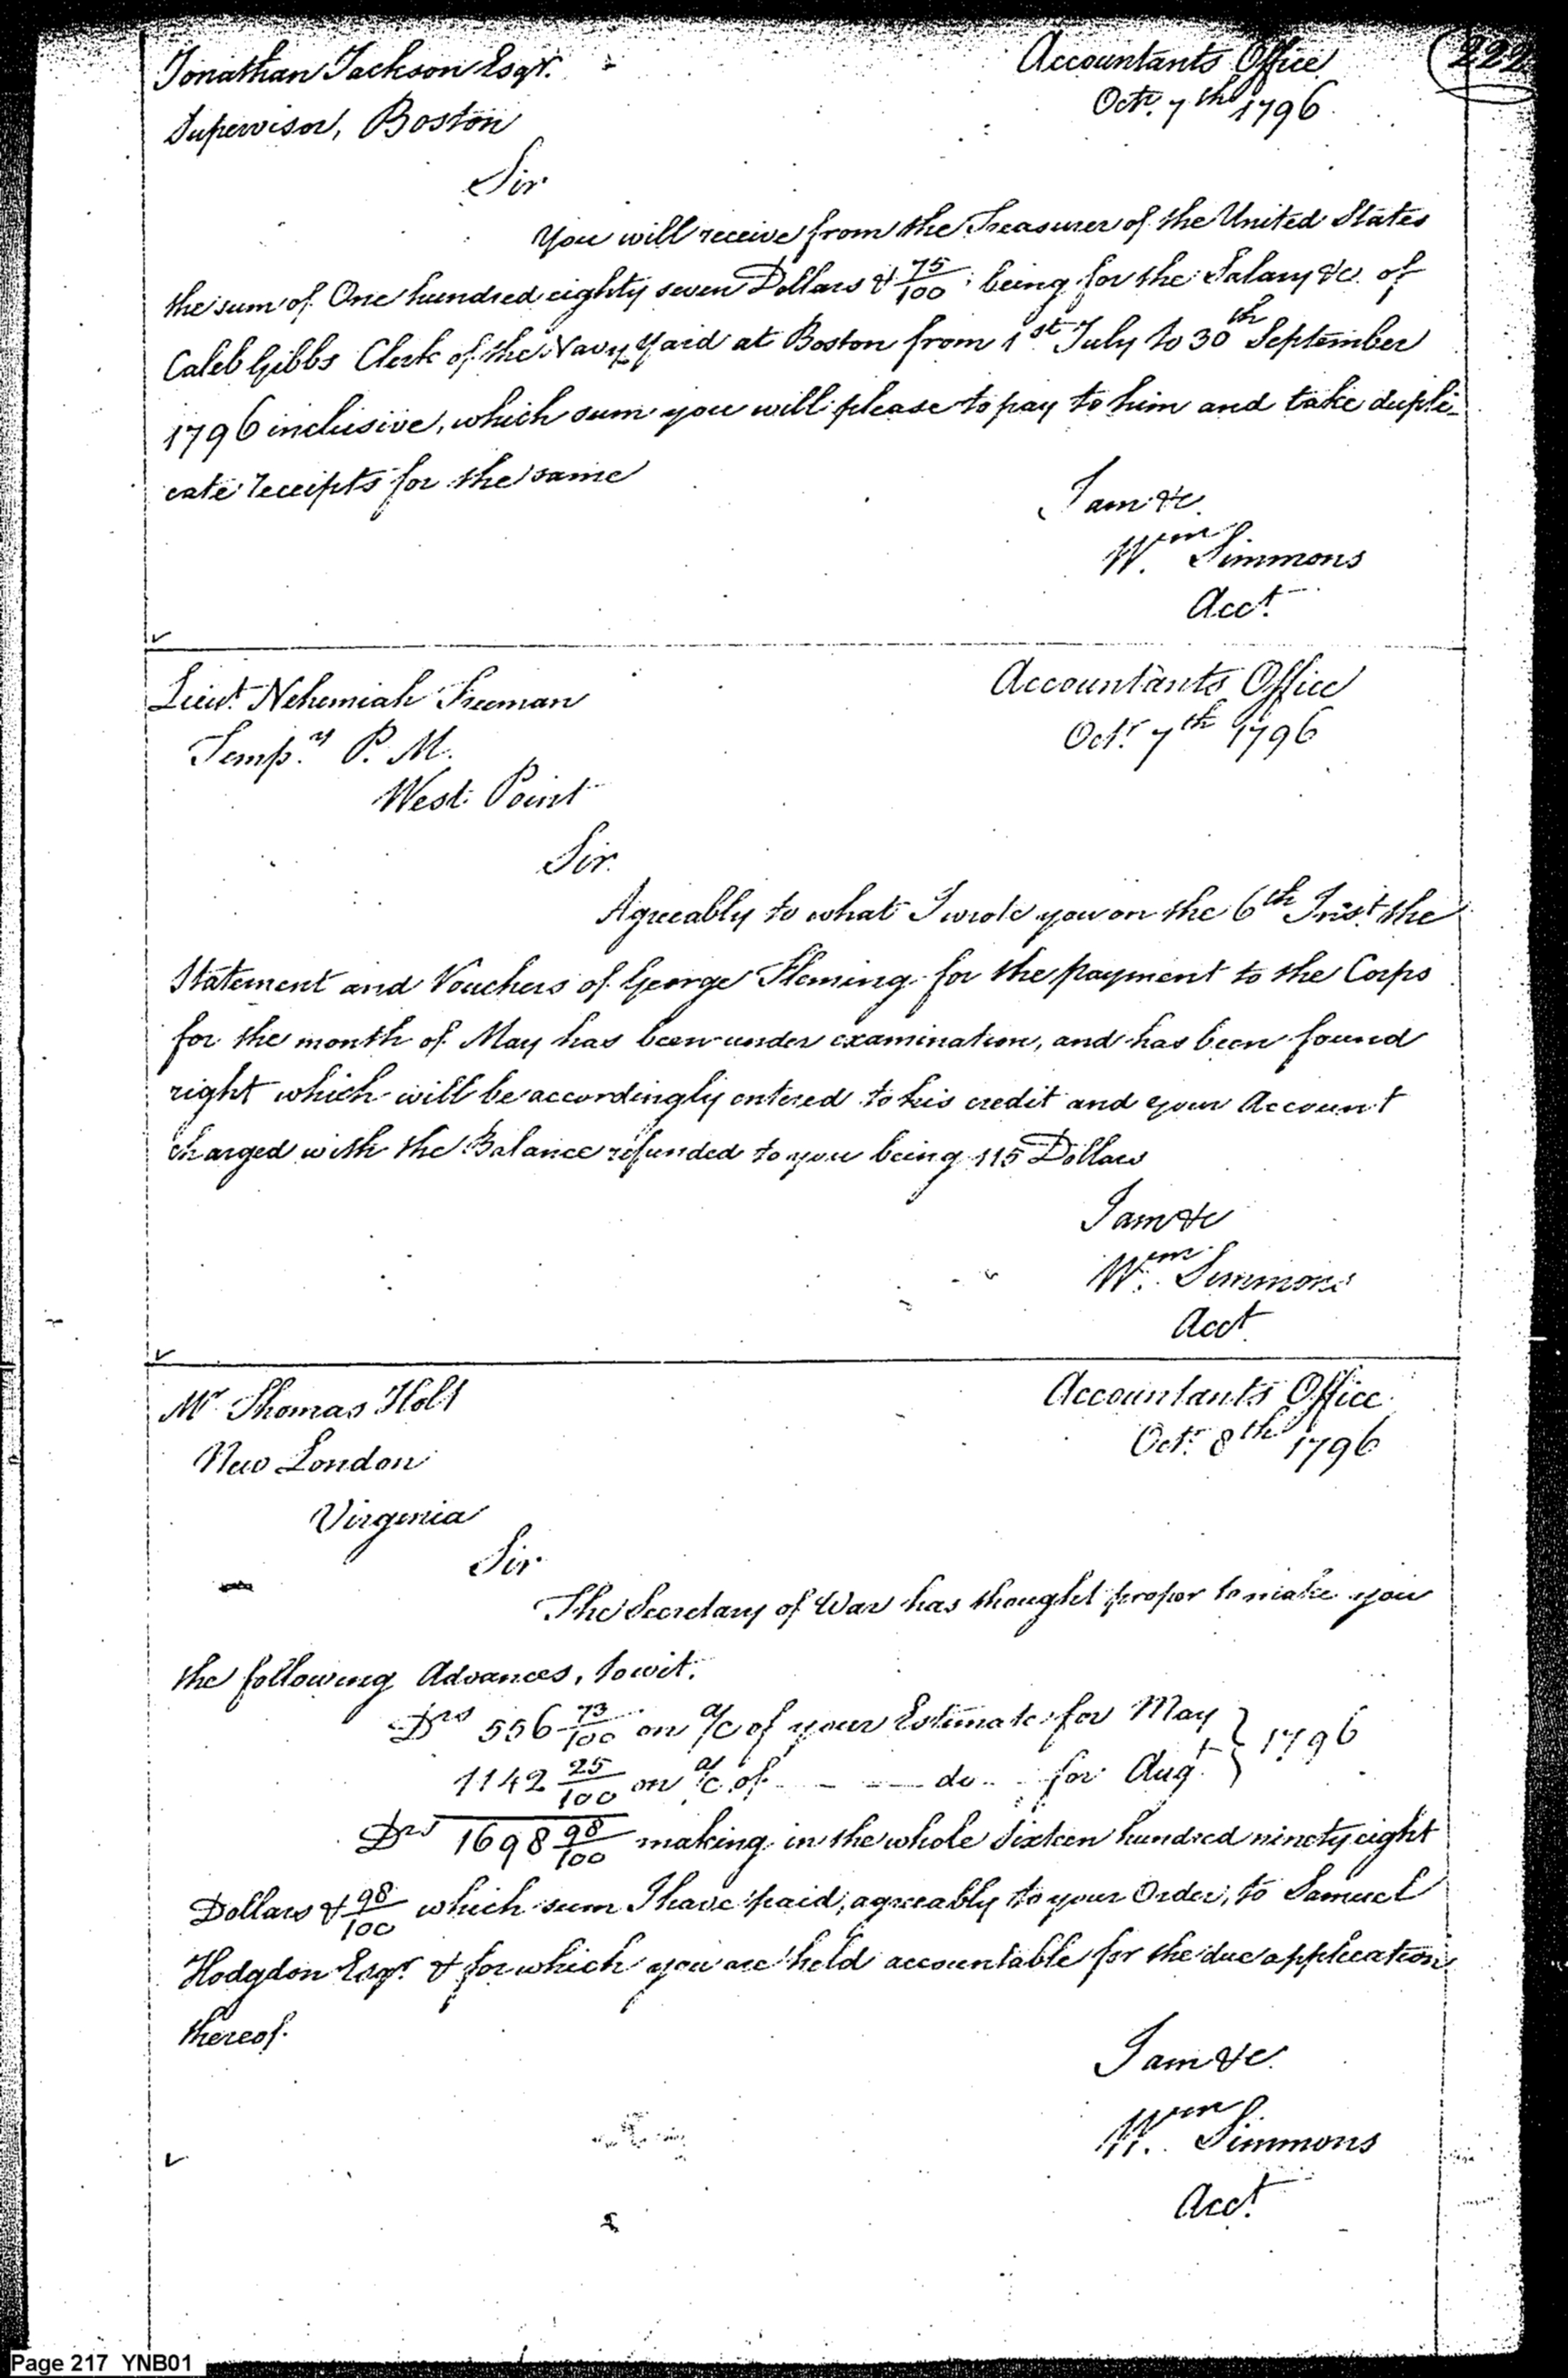 222
Jonathan Jackson Esqr.
Accountants Office
Supervisor, Boston
Octr. 7th 1796
Sir
You will receive from the Treasurer of the United States
the sum of One hundred eighty seven Dollars & 75/100; being for the Salary &c. of
Caleb Gibbs Clerk of the Navy Yard at Boston from 1st July to 30th September
1796 inclusive, which sum you will please to pay to him and take dupli-
cate receipts for the same
I am &c.
Wm. Simmons
Acct.
Lieut. Nehemiah Freeman
Accountants Office
Tempy. P. M.
Octr. 7th 1796
West Point
Sir.
Agreeably to what I wrote you on the 6th Inst. the
Statement and Vouchers of George Fleming for the payment to the Corps
for the month of May has been under examination, and has been found
right which will be accordingly entered to his credit and your Account
charged with the Balance refunded to you being 115 Dollars
I am &c
Wm. Simmons
Acct
Mr Thomas Holt
Accountants Office
New London
Octr. 8th 1796
Virginia
Sir
The Secretary of War has thought proper to make you
the following Advances, towit.
Drs 556 73/100 on a/c of your Estimate for May } 1796
1142 25/100 on a/c of - - - do. for Augt. }
Drs 1698 98/100 making in the whole Sixteen hundred ninety eight
Dollars & 98/100 which sum I have paid, agreeably to your Order, to Samuel
Hodgdon Esqr. & for which you are held accountable for the due application
thereof.
I am &c.
Wm. Simmons
Acct.
Page 217 YNB01